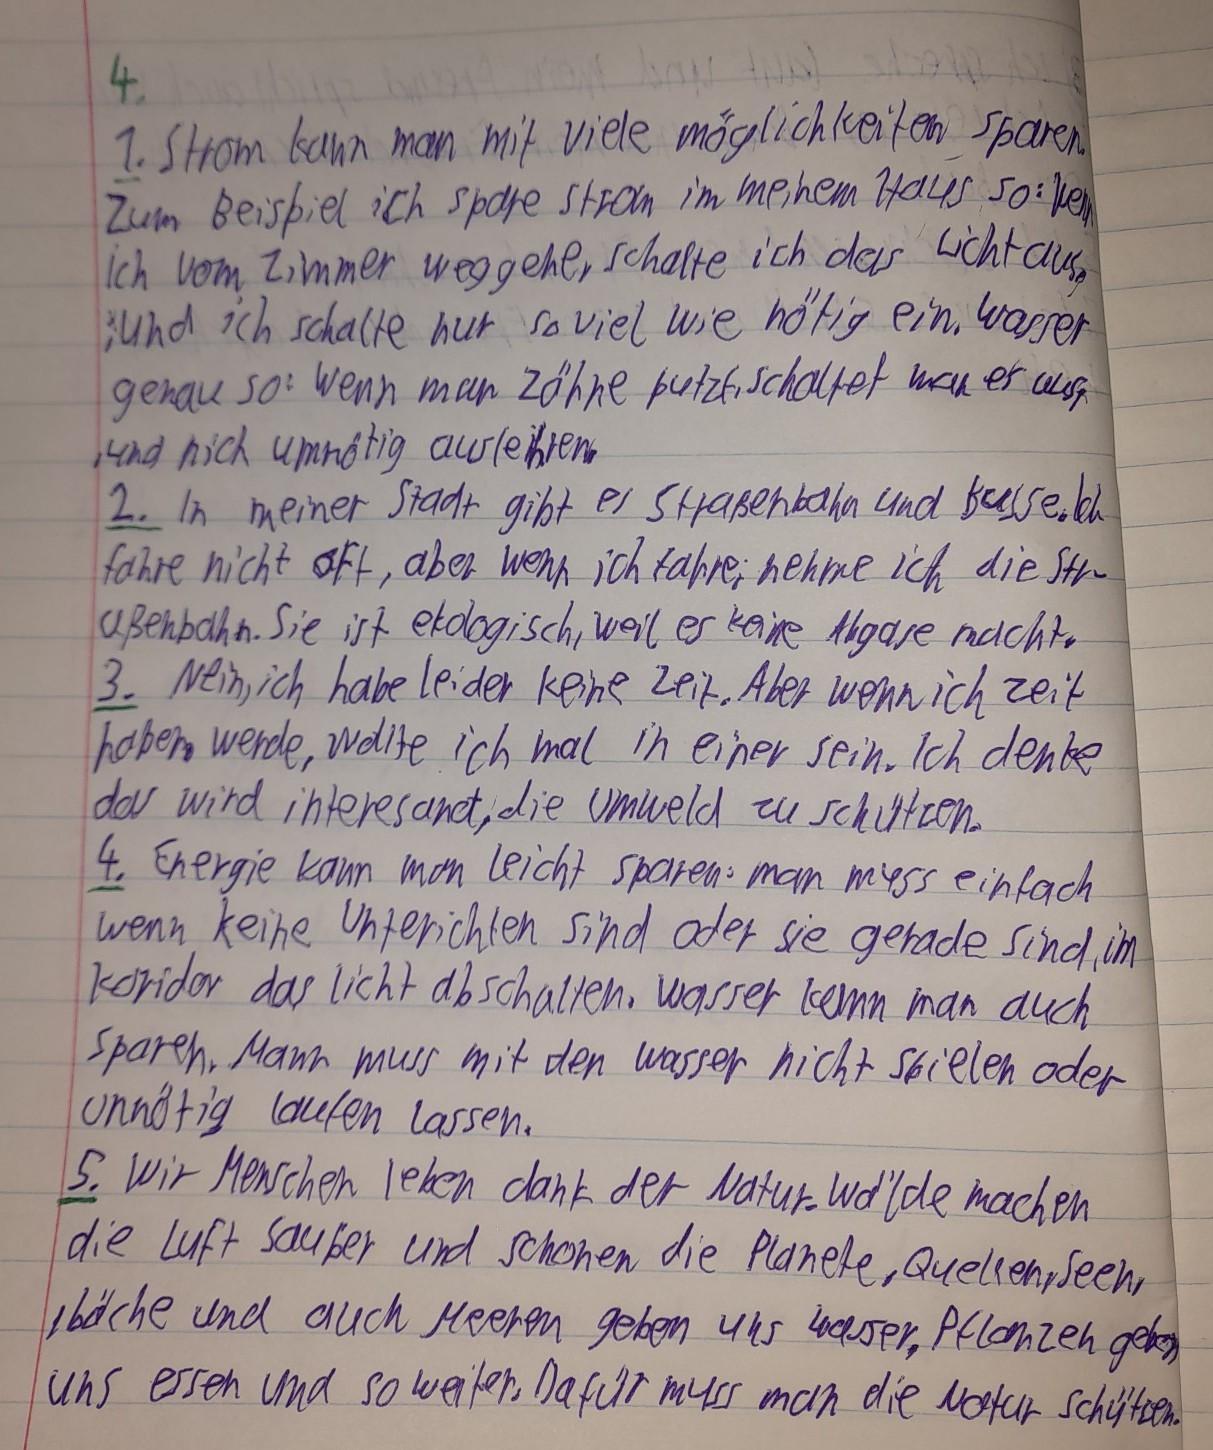 4.
1. Strom kann man mit viele möglichkeiten sparen.
Zum Beispiel ich spare strom im meinem Haus so: Wenn
ich vom Zimmer weggehe, schalte ich das Licht aus,
und ich schalte nur so viel wie nötig ein. Wasser
genau so: Wenn man Zähne putzt, schaltet man es aus,
und nich umnötig ausleihren.
2. In meiner Stadt gibt es Straßenbahn und Busse. Ich
fahre nicht oft, aber wenn ich fahre, nehme ich die Str-
aßenbahn. Sie ist ekologisch, weil es keine Abgase macht.
3. Nein, ich habe leider keine Zeit. Aber wenn ich zeit
haben werde, wollte ich mal in einer sein. Ich denke
das wird interesant, die Umweld zu schützen.
4. Energie kann man leicht sparen: man muss einfach
wenn keine Unterichten sind oder sie gerade sind, im
koridor das licht abschalten. Wasser kann man auch
sparen. Mann muss mit den wasser nicht spielen oder
unnötig laufen lassen.
5. Wir Menschen leben dank der Natur. Wälde machen
die Luft sauber und schonen die Planete, Quellen, Seen,
bäche und auch Meeren geben uns wasser, Pflanzen geben
uns essen und so weiter. Dafür muss man die Natur schützen.